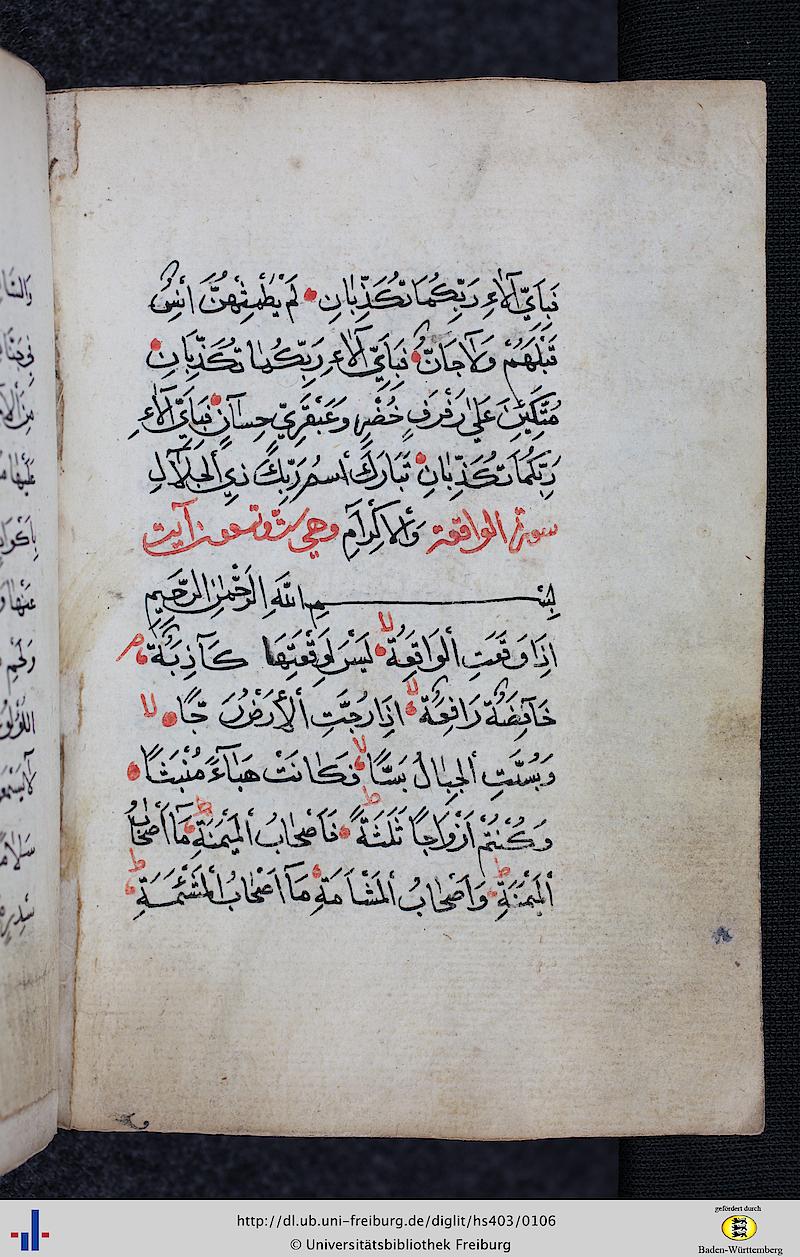 فَبِاَيِّ اٰلَاءِ رَبِّكُمَا تُكَذِّبَانِ لَمْ يَطْمِثْهُنَّ اِنْسٌ
قَبْلَهُمْ وَلَا جَانٌّ فَبِاَيِّ اٰلَاءِ رَبِّكُمَا تُكَذِّبَانِ
مُتَّكِئِينَ عَلَى رَفْرَفٍ خُضْرٍ وَعَبْقَرِيٍّ حِسَانٍ فَبِاَيِّ اٰلَاءِ
رَبِّكُمَا تُكَذِّبَانِ تَبَارَكَ اسْمُ رَبِّكَ ذِي الْجَلَالِ
وَالْاِكْرَامِ سورة الواقعة وهي ست وتسعون آيت
بِسْمِ اللَّهِ الرَّحْمٰنِ الرَّحِيمِ
اِذَا وَقَعَتِ الْوَاقِعَةُ لا لَيْسَ لِوَقْعَتِهَا كَاذِبَةٌ م
خَافِضَةٌ رَافِعَةٌ لا اِذَا رُجَّتِ الْاَرْضُ رَجًّا لا
وَبُسَّتِ الْجِبَالُ بَسًّا لا فَكَانَتْ هَبَاءً مُنْبَثًّا
وَكُنْتُمْ اَزْوَاجًا ثَلٰثَةً ط فَاَصْحَابُ الْمَيْمَنَةِ ط مَا اَصْحَابُ
الْمَيْمَنَةِ ط وَاَصْحَابُ الْمَشْاَمَةِ مَا اَصْحَابُ الْمَشْئَمَةِ ط
http://dl.ub.uni-freiburg.de/diglit/hs403/0106
© Universitätsbibliothek Freiburg
gefördert durch
Baden-Württemberg